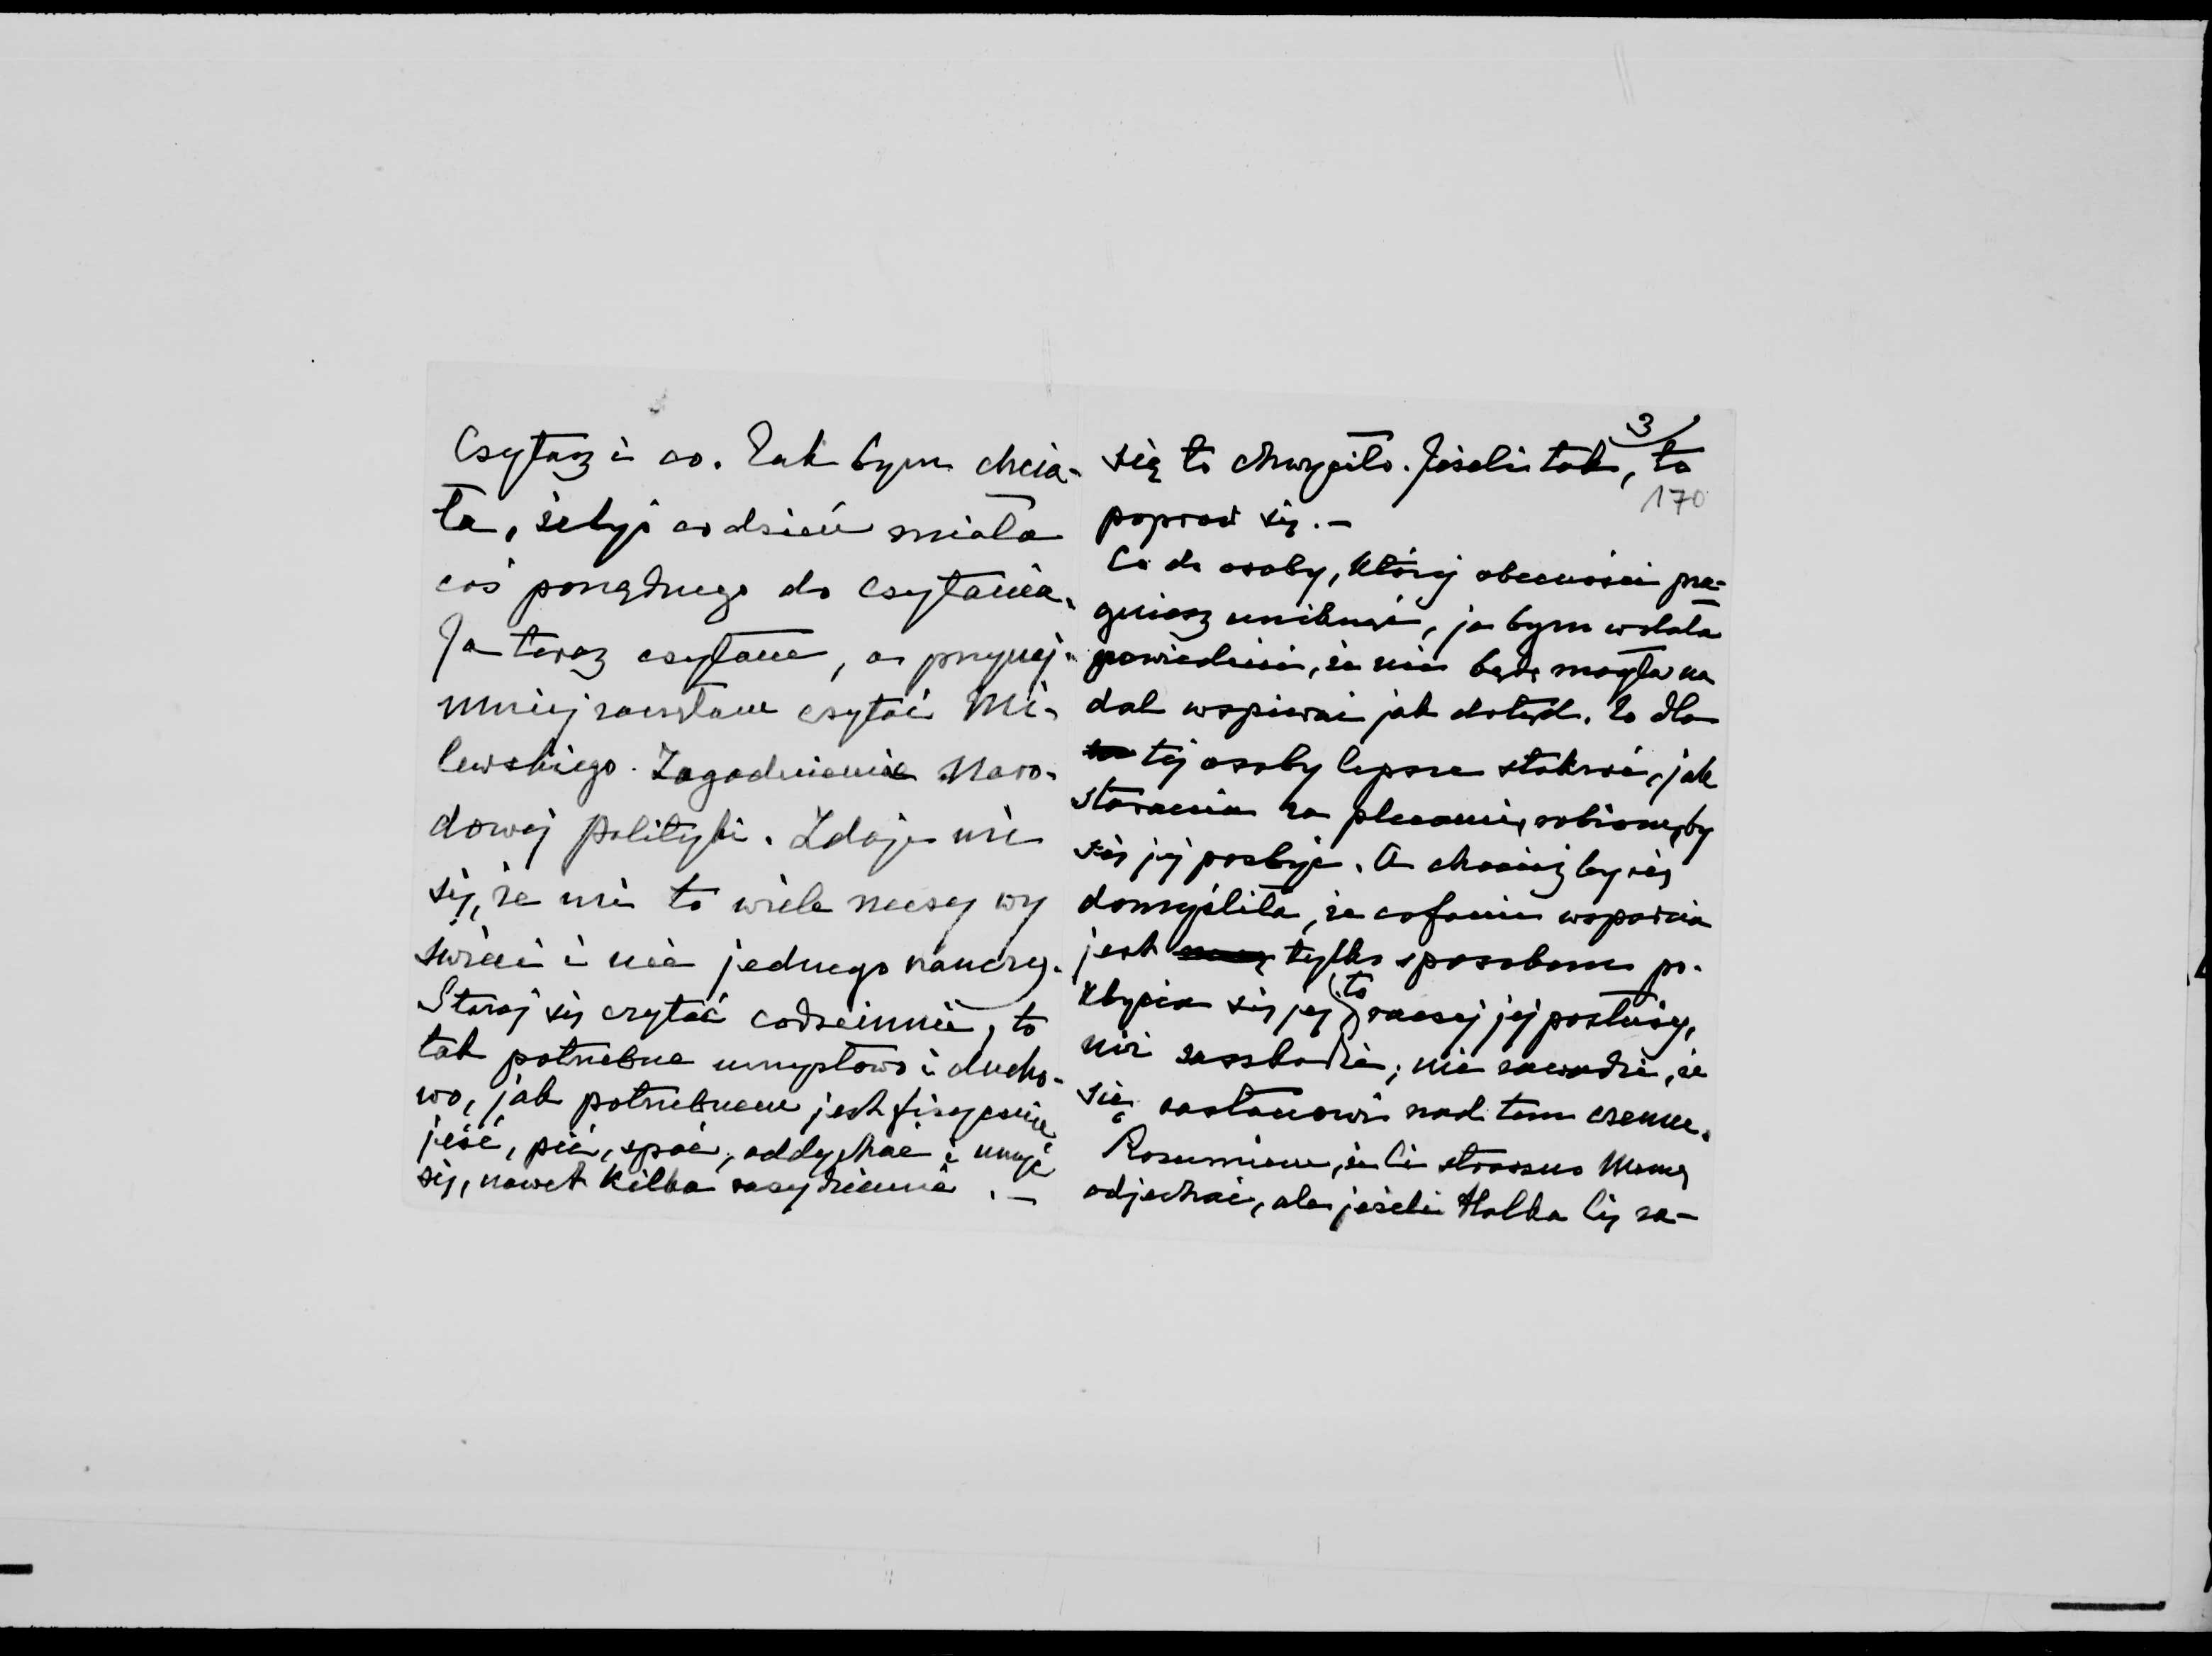 Czytasz i co. Tak bym chcia-
ła, żebyś co dzień miała
coś porządnego do czytania.
Ja teraz czytam, a przynaj-
mniej zaczęłam czytać Mi-
lewskiego. Zagadnienia Naro-
dowej Polityki. Zdaje mi
się, że mi to wiele rzeczy wy
świeci i nie jednego nauczy.
Staraj się czytać codziennie, to
tak potrzebne umysłowo i ducho-
wo, jak potrzebnem jest fizycznie
jeść, pić, spać, oddychać i umyć
się, nawet kilka razy dziennie. —
3/
170
się to chwyciło. Jeżeli tak, to
popraw się. —
Co do osoby, której obecności pra-
gniesz uniknąć, ja bym wolała
powiedzieć, że nie będę mogła na
dal wspierać jak dotąd. To dla
tej osoby lepsze stokroć, jak
starania za plecami, robione, by
się jej pozbyć. A chociaż by się
domyśliła, że cofanie wsparcia
jest tylko sposobem po-
zbycia się jej, to raczej jej posłuży,
niż zaszkodzi; nie zawadzi, że
się zastanowi nad tem czemu.
Rozumiem, że Ci straszno Mamę
odjechać, ale jeżeli Halka Cię za-